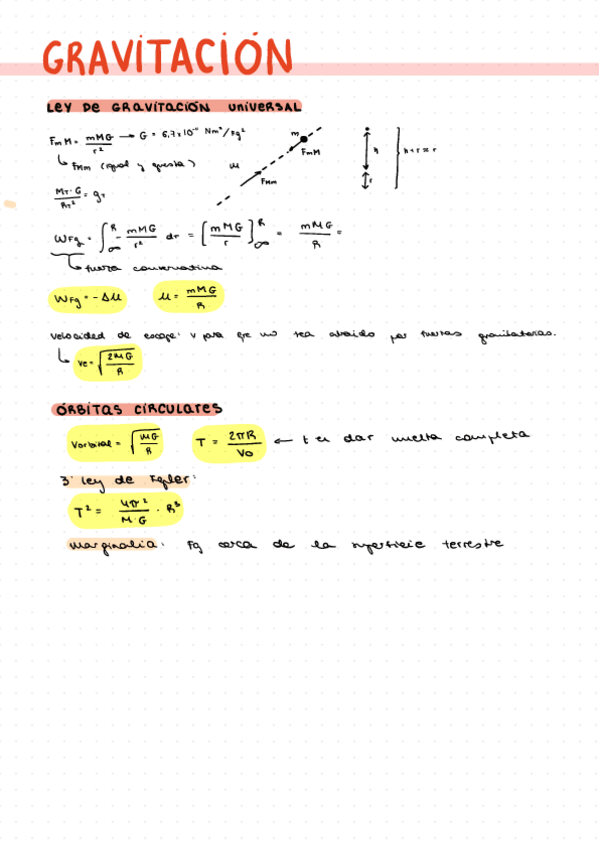 GRAVITACIÓN
LEY DE GRAVITACIÓN UNIVERSAL
FmM = mMG/r² → G = 6,7x10⁻¹¹ Nm²/kg²
FMm (igual y opuesta)
m
FmM
M
FMm
h
r
h+r = r
MT·G/RT² = gT
WFg = ∫∞^R - mMG/r² dr = [mMG/r]∞^R = mMG/R =
fuerza conservativa
WFg = -ΔU U = mMG/R
velocidad de escape: v para que no sea atraido por fuerzas gravitatorias.
Ve = √(2MG/R)
ÓRBITAS CIRCULARES
Vorbital = √(MG/R) T = 2πR/Vo ← t en dar vuelta completa
3ª Ley de Kepler:
T² = 4π²/M·G · R³
marginalia: Fg cerca de la superficie terrestre